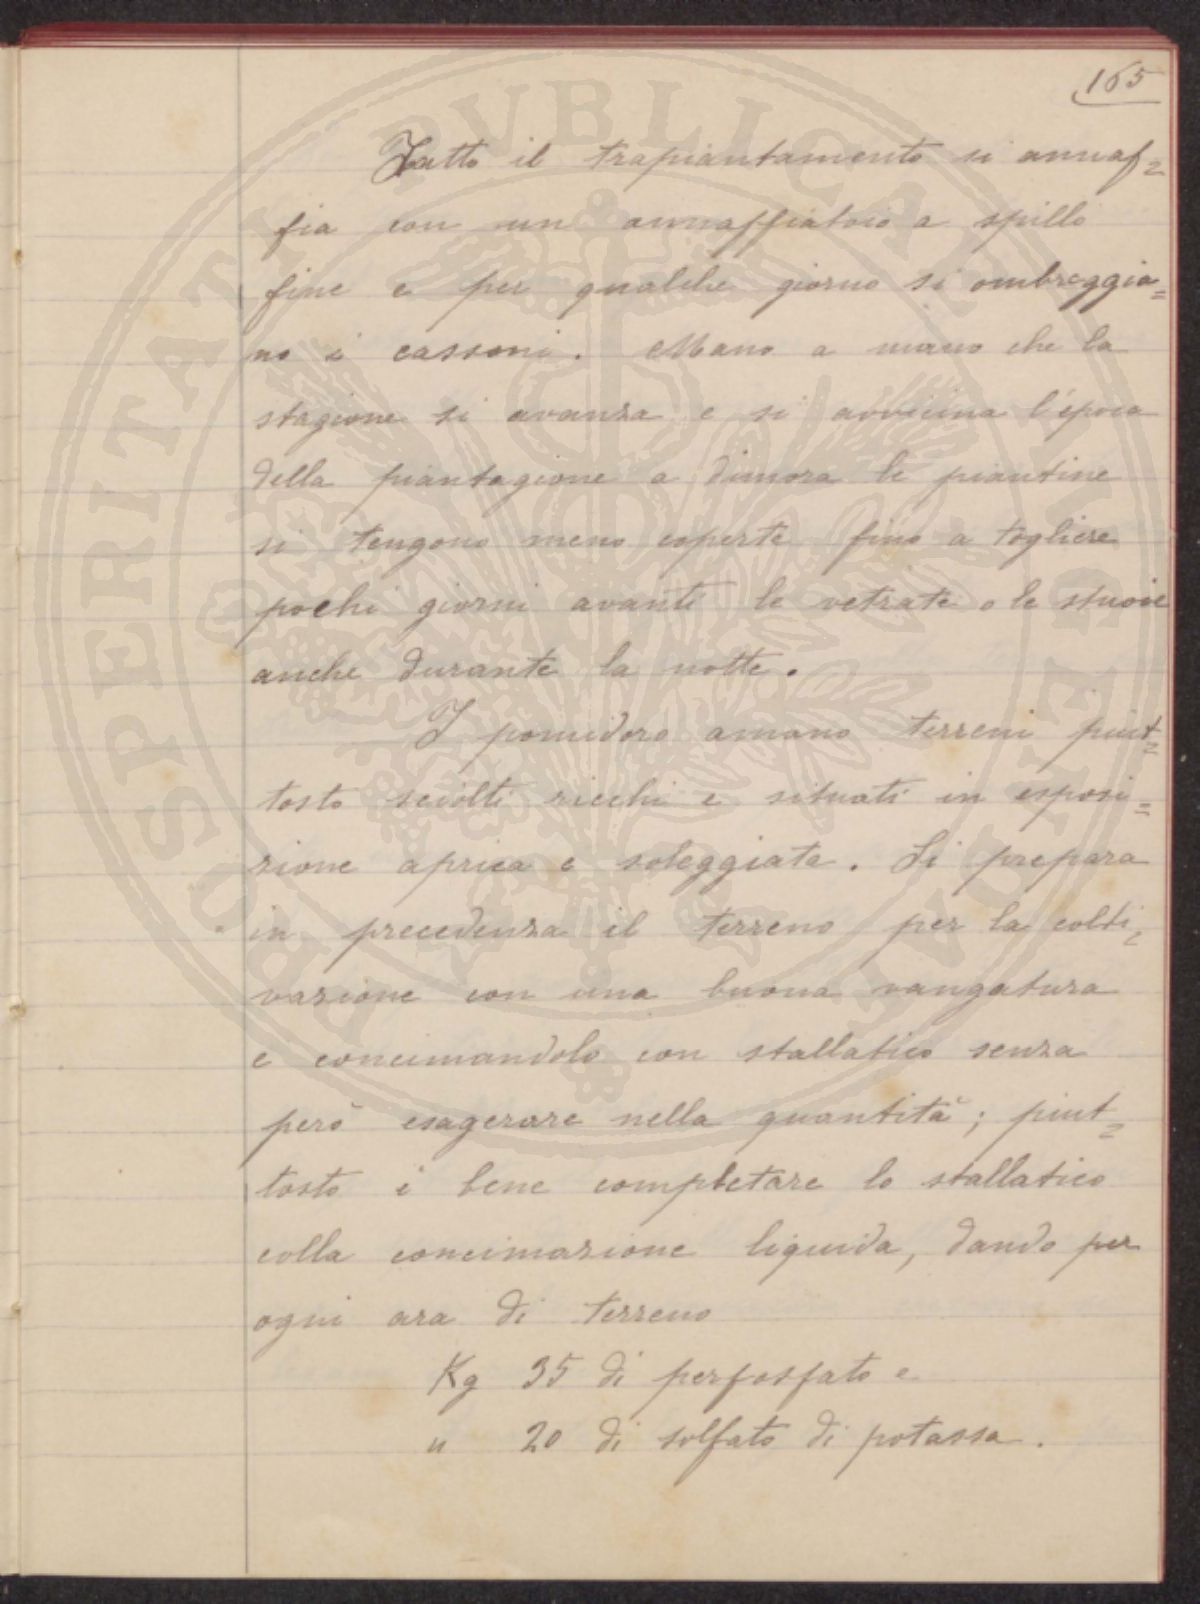 165
Fatto il trapiantamento si annaf=
fia con un annaffiatoio a spillo
fine e per qualche giorno si ombreggia=
no i cassoni. Mano a mano che la
stagione si avanza e si avvicina l'epoca
della piantagione a dimora le piantine
si tengono meno coperte fino a togliere
pochi giorni avanti le vetrate o le stuoie
anche durante la notte.
I pomidoro amano terreni piut=
tosto sciolti ricchi e situati in esposi=
zione aprica e soleggiata. Si prepara
in precedenza il terreno per la colti=
vazione con una buona vangatura
e concimandolo con stallatico senza
però esagerare nella quantità; piut=
tosto è bene completare lo stallatico
colla concimazione liquida, dando per
ogni ara di terreno
Kg 35 di perfosfato e
" 20 di solfato di potassa.
PROSPERITATI PUBLICAE AUGENDAE